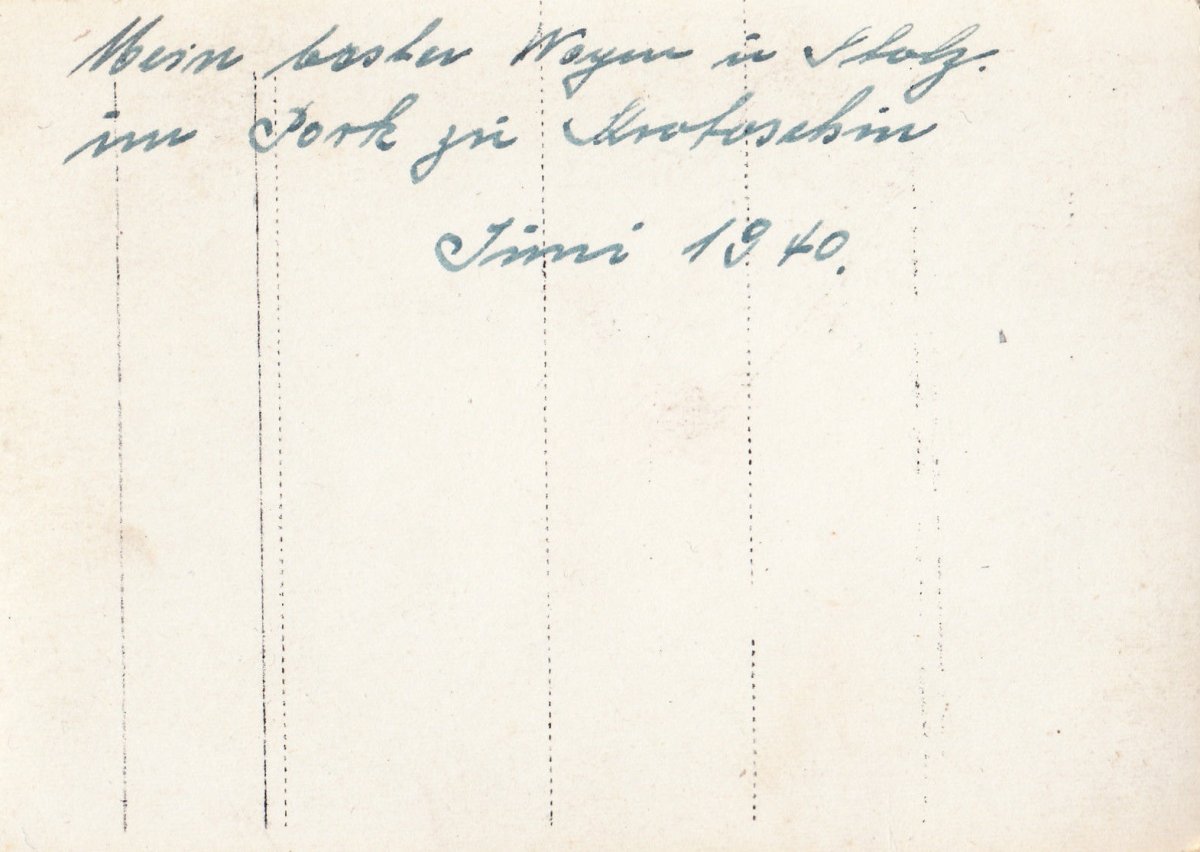 Mein bester Wagen u Stolz.
im Park zu Krotoschin
Juni 1940.